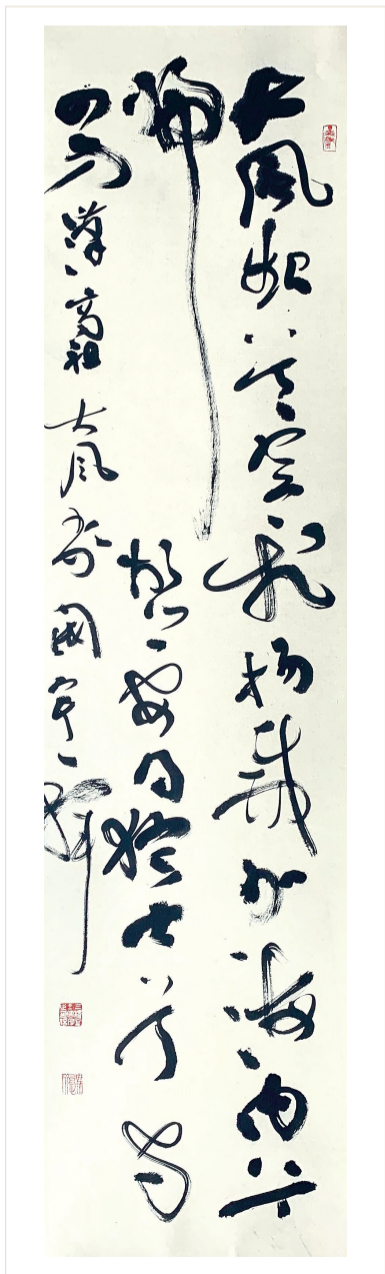 大風起兮雲飛揚威加海内兮
歸故鄉安得猛士兮守
四方漢高祖大風歌